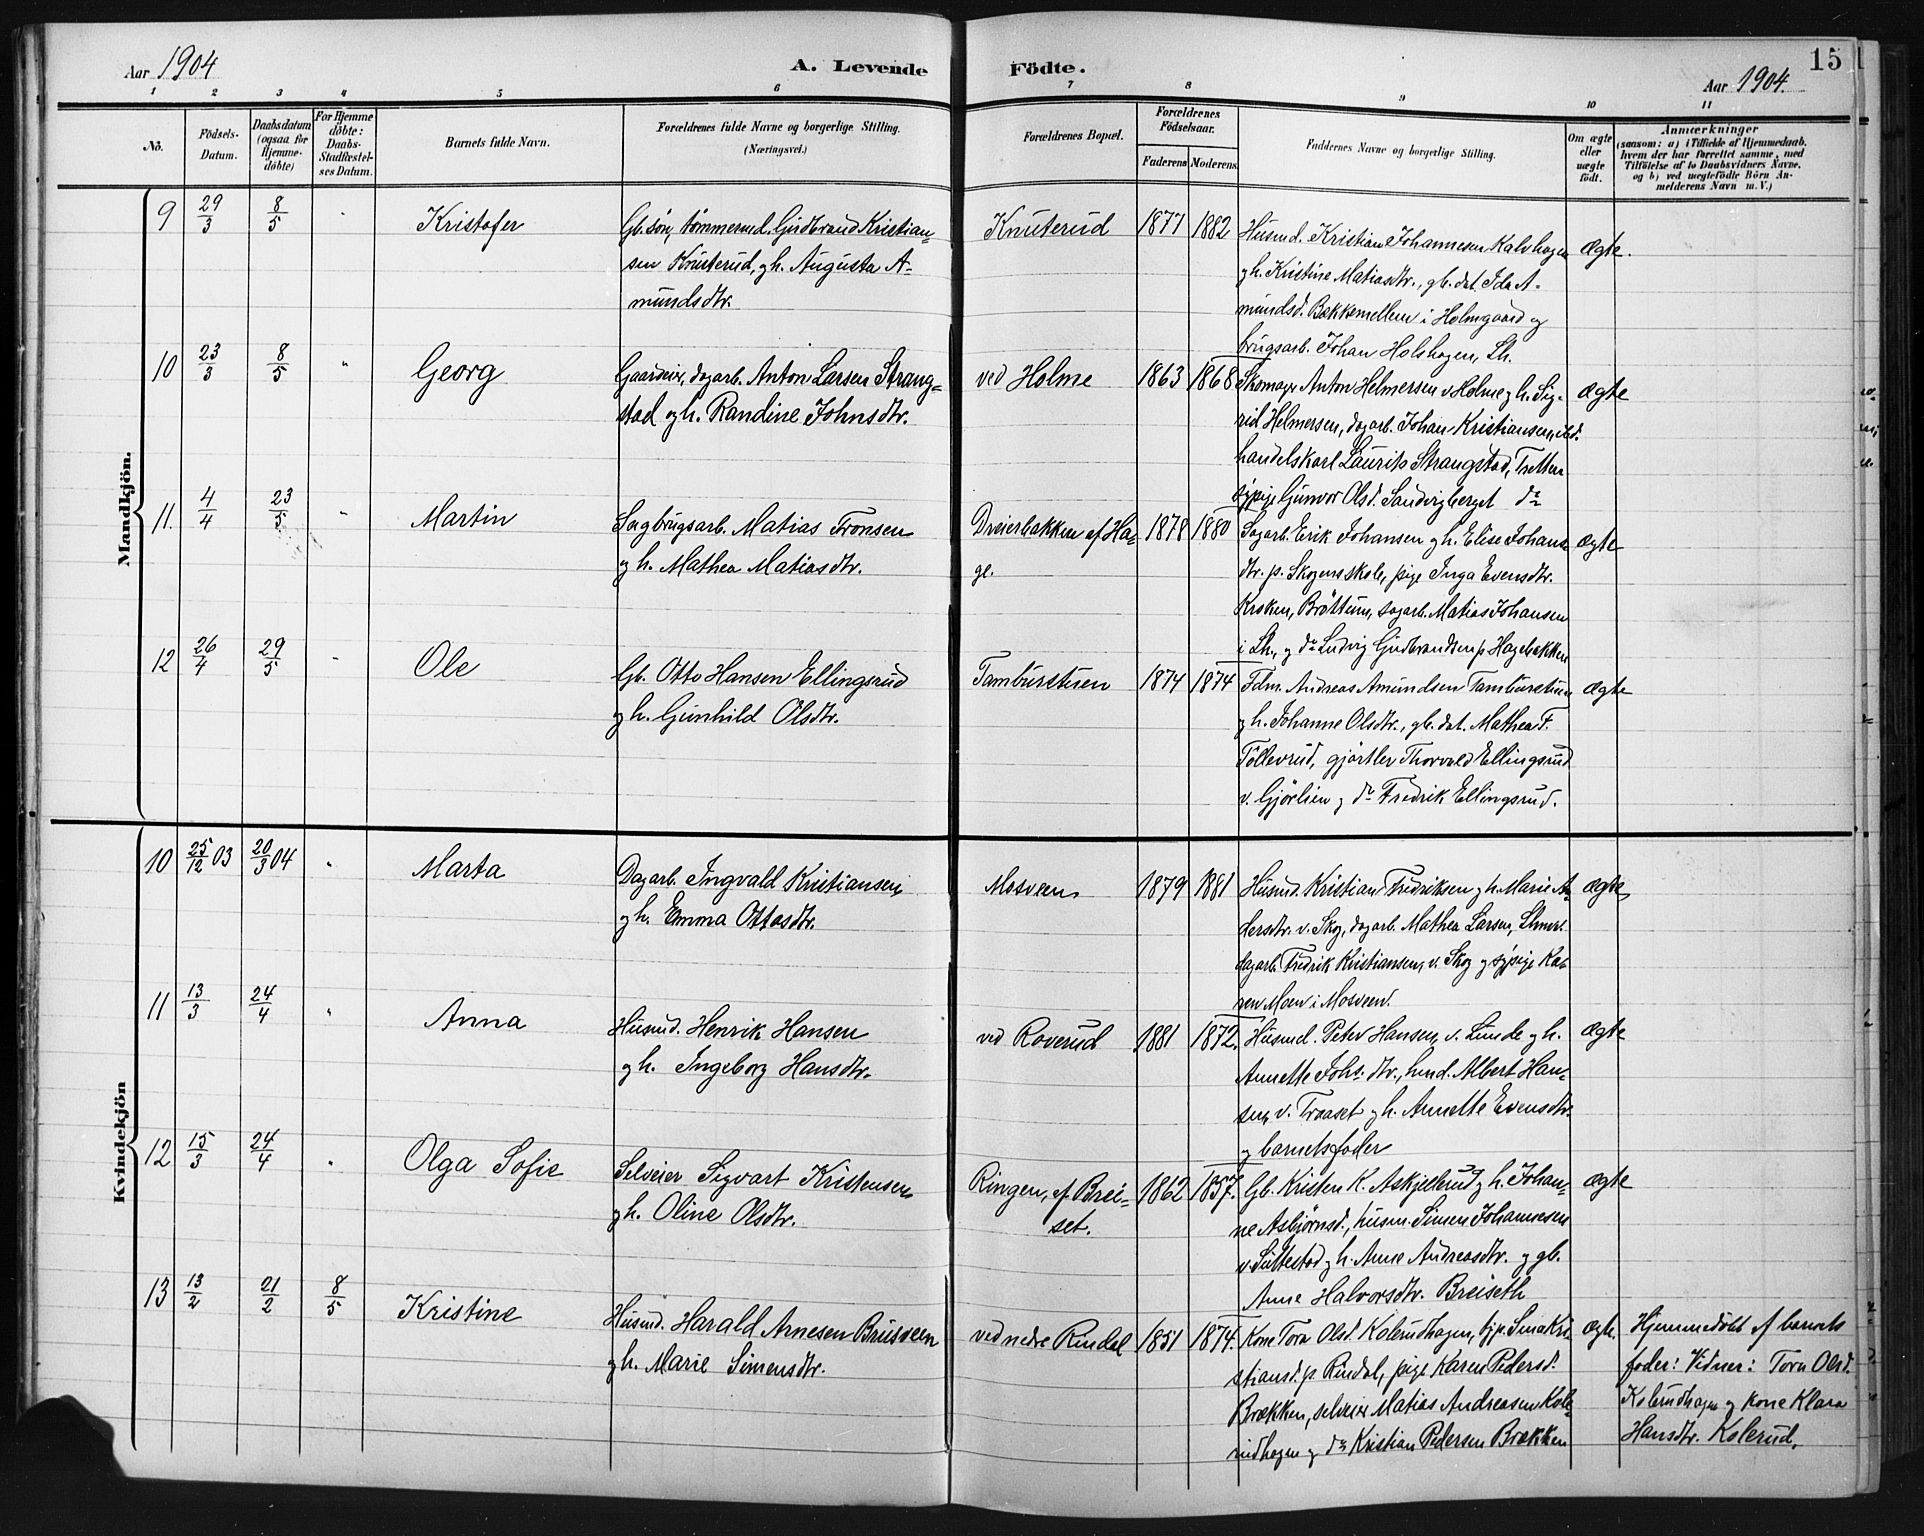 Aar 1904
A. Levende
Födte.
Aar 1904.
15
1 2 3 4 5 6 7 8 9 10 11
No.
Födsels-
Datum.
Daabsdatum
(ogsaa for
Hjemme-
döbte)
For Hjemme
döbte:
Daabs-
Stadfæstel-
ses Datum.
Barnets fulde Navn.
Forældrenes fulde Navne og borgerlige Stilling.
(Næringsvei.)
Forældrenes Bopæl.
Forældrenes
Födselsaar.
Faderens Moderens
Faddernes Navne og borgerlige Stilling.
Om ægte
eller
uægte
födt.
Anmærkninger
(saasom: a) i Tilfælde af Hjemmedaab,
hvem der har forrettet samme, med
Tilföielse af to Daabsvidners Navne,
og b) ved uægtefödte Börn An-
melderens Navn m. V.)
Mandkjön.
9 29/3 8/5 " Kristofer
Gb. søn, tømmermd. Gudbrand Kristian-
sen Knuterud, gh. Augusta A-
mundsdtr.
Knuterud 1877 1882
Husmd. Kristian Johannesen Kalvhagen
gh. Kristine Matiasdtr., gb. dat. Ida A-
mundsd. Bækkemellem i Holmgaard og
brugsarb. Johan Holshagen, Lh.
ægte.
10 23/3 8/5 " Georg
Gaardeier, dagarb. Anton Larsen Strang-
stad og h. Randine Johnsdtr.
ved Holme 1863 1868
Skomager Anton Helmersen v. Holme g h. Sig-
rid Helmersen, dagarb. Johan Kristiansen, ibd.
handelskarl Laurits Strangstad, Tretten
sypige Gunvor Olsd. Sandvigberget do
ægte
11. 4/4 23/5 " Martin
Sagbrugsarb. Matias Fronsen
og h. Mathea Matiasdtr.
Dreierbakken af Ha-
ge.
1878 1880
Sagarb. Erik Johansen g h. Elise Johans
dtr. p. Skogens skole, pige Inga Evensdtr.
Kroken, Brøttum, sagarb. Matias Johansen
i Lh., g do Ludvig Gudbrandsen p. Hagebakken
ægte
12 26/4 29/5 " Ole
Gb. Otto Hansen Ellingsrud
og h. Gunhild Olsdtr.
Tamburstuen 1874 1874
Fdm. Andreas Amundsen Tamburstuen
g h. Johanne Olsdtr., gb. dat. Mathea F.
Töllevrud, gjørtler Thorvald Ellingsrud
v. Gjörlien g do Fredrik Ellingsrud.
ægte
Kvindekjön
10 25/12 03 20/3 04 " Marta
Dagarb. Ingvald Kristiansen
og h. Emma Ottosdtr.
Mosveen 1879 1881
Husmd. Kristian Fredriksen g h. Marie An-
dersdtr. v. Skog, dagarb. Mathea Larsen, Lhmr.
dagarb. Fredrik Kristiansen, v. Skog g sypige Ka-
ren Moen i Mosveen.
ægte
11 13/3 24/4 " Anna
Husmd. Henrik Hansen
og h. Ingeborg Hansdtr.
ved Roverud 1881 1872.
Husmd. Peter Hansen, v. Lunde g h.
Annette Johs. dtr., husmd. Albert Han-
sen, v. Traaset g h. Annette Evensdtr.
g barnets fader
ægte
12 15/3 24/4 " Olga Sofie
Selveier Sigvart Kristensen
g h. Oline Olsdtr.
Ringen, af Brei-
set.
1862 1857.
Gb. Kristen K. Askjellerud g h. Johan-
ne Asbjørnsd., husm. Simen Johannesen
v. Suttestad g h. Anne Andreasdtr. g gb.
Anne Halvorsdtr. Breiseth
ægte
13 13/2 21/2 8/5 Kristine
Husmd. Harald Arnesen Brusveen
g h. Marie Simensdtr.
ved nedre Rindal 1851 1874.
Kone Tora Olsd. Kolerudhagen, tjp. Sina Kri-
stiansd. p. Rindal, pige Karen Pedersd.
Brækken, selveier Matias Andreasen Kole-
rudhagen g do Kristian Pedersen Brækken
ægte.
Hjemmedöbt af barnets
fader: Vidner: Tora Olsd.
Kolerudhagen og kone Klara
Hansdtr. Kolerud.